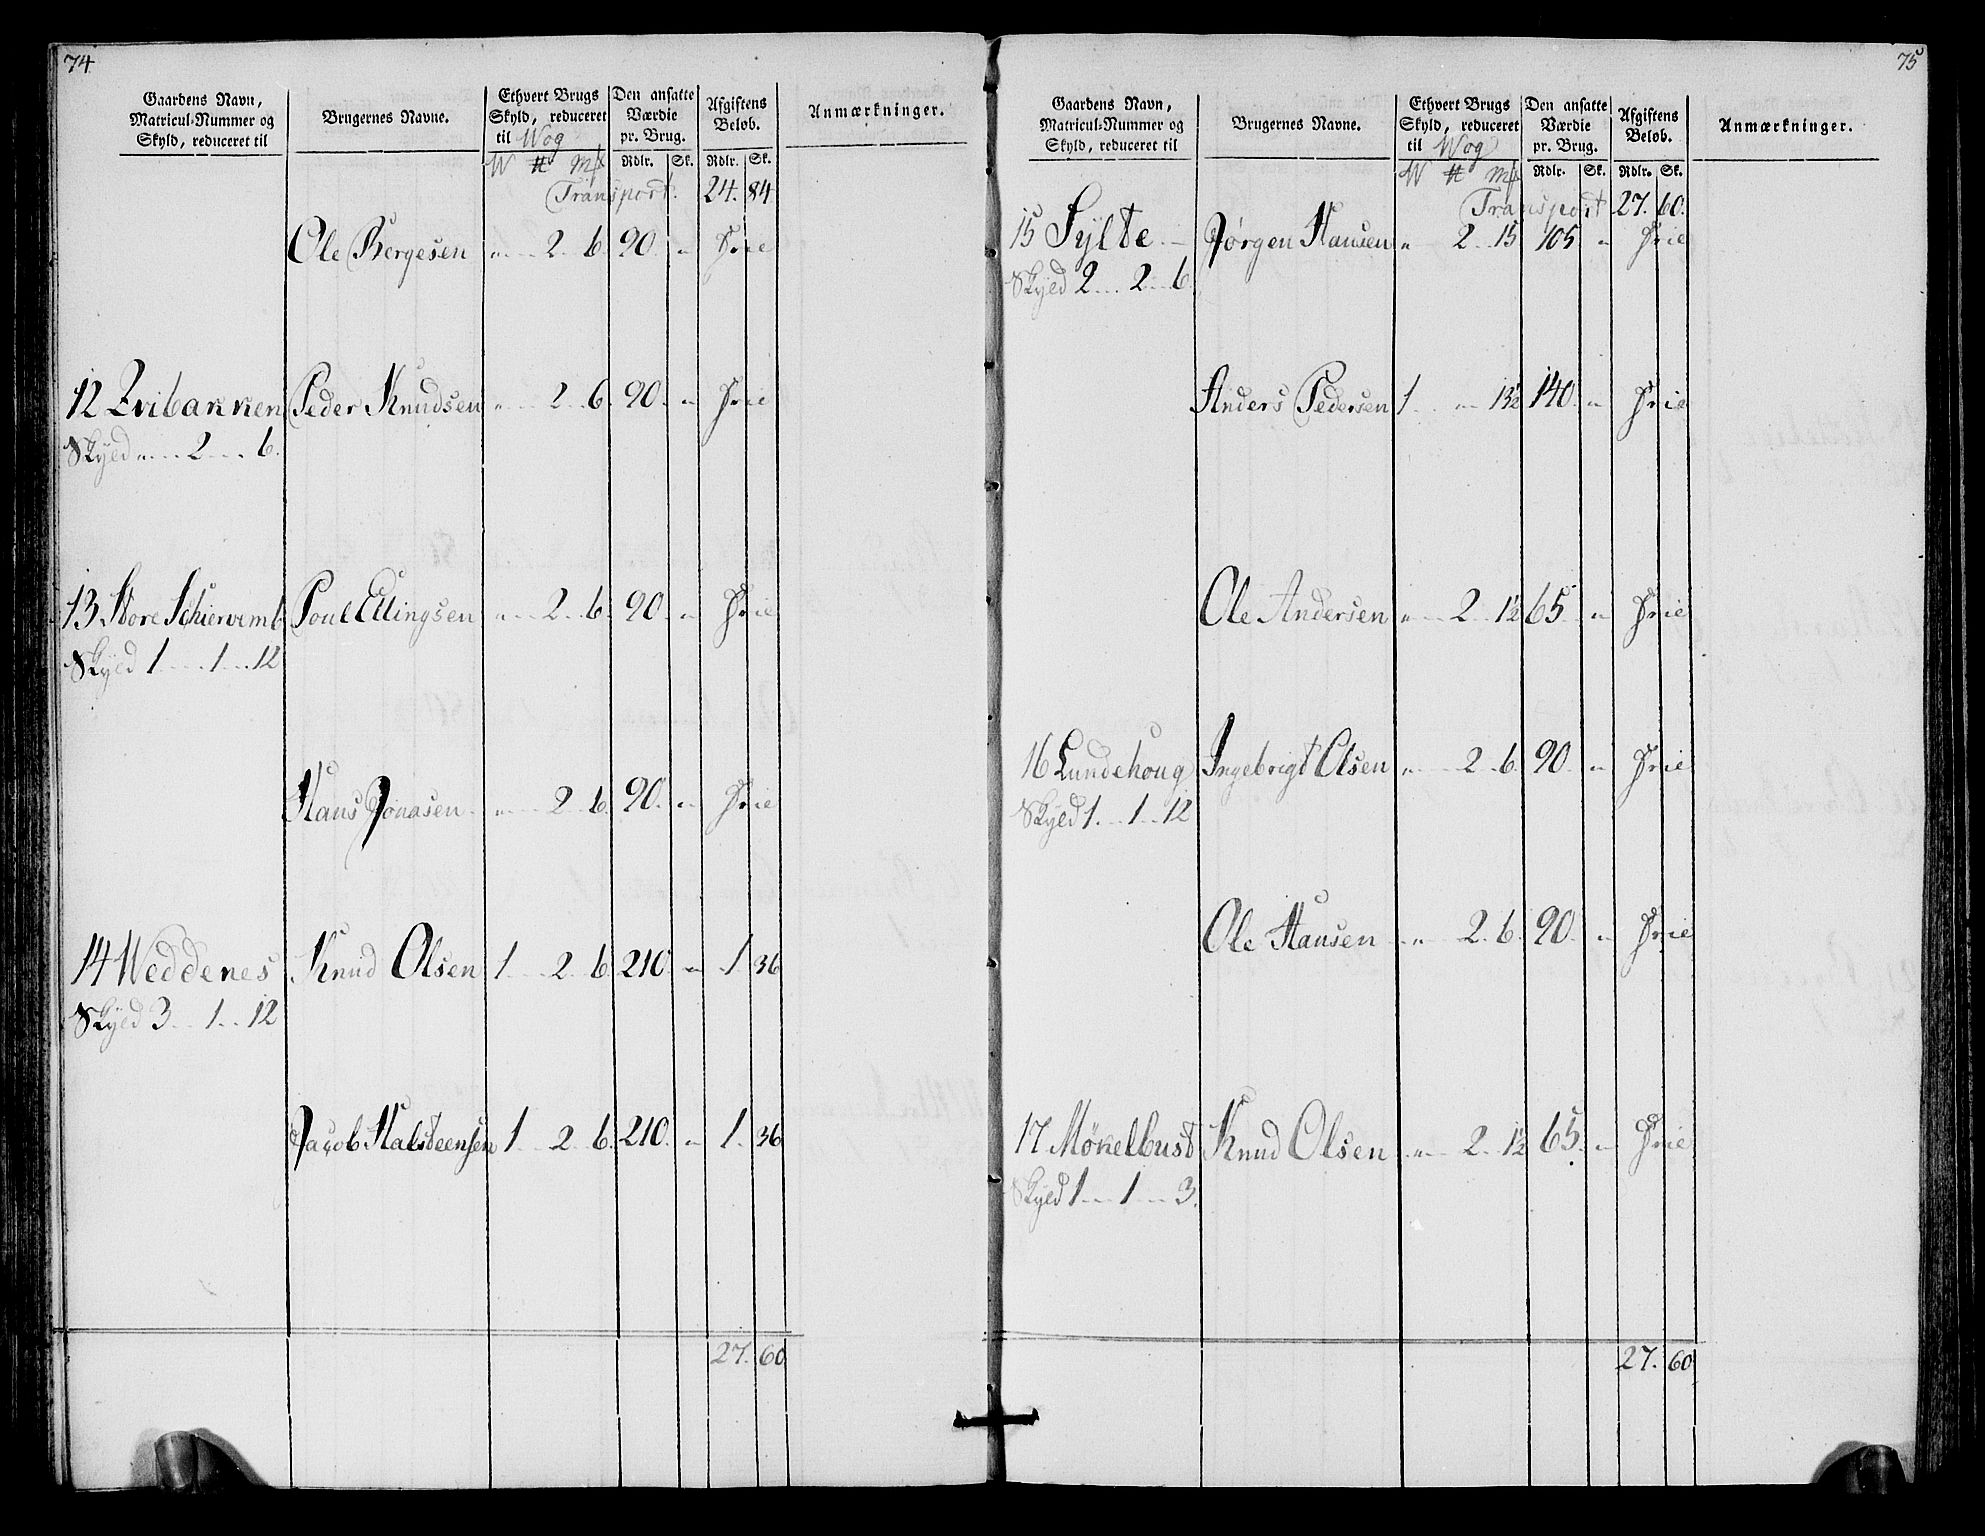 74
Gaardens Navn, Matricul-Nummer og Skyld, reduceret til
Brugernes Navne.
Ethvert Brugs Skyld, reduceret til Wog
Den ansatte Værdie pr. Brug.
Afgiftens Beløb.
Anmærkninger.
W ℔ mk Rdlr. Sk. Rdlr. Sk.
Transport. 24. 84
Ole Bergesen „ 2 6. 90. „ Frie
12 Qvibakken Peder Knudsen „ 2 6. 90. „ Frie
Skyld „ 2 6.
13 Store Schiervem Poul Ellingsen „ 2 6. 90. „ Frie
Skyld 1 1 12
Hans Jonasen „ 2 6. 90. „ Frie
14 Weddenes Knud Olsen 1 2 6. 210 „ 1 36
Skyld 3 1 12
Jacob Halsteensen 1 2 6. 210. „ 1. 36
27. 60
75
Gaardens Navn, Matricul-Nummer og Skyld, reduceret til
Brugernes Navne.
Ethvert Brugs Skyld, reduceret til Wog
Den ansatte Værdie pr. Brug.
Afgiftens Beløb.
Anmærkninger.
W ℔ mk Rdlr. Sk. Rdlr. Sk.
Transport 27. 60.
15 Sylte Jørgen Hansen „ 2 15 105 „ Frie
Skyld 2 2 6.
Anders Pedersen 1 „ 13½ 140. „ Frie
Ole Andersen „ 2 1½ 65 „ Frie
16 Lundehoug Ingebrigt Olsen „ 2 6. 90. „ Frie
Skyld 1 1 12
Ole Hansen „ 2 6. 90. „ Frie
17 Møkelbust Knud Olsen „ 2 1½ 65. „ Frie
Skyld 1 1 3.
27. 60